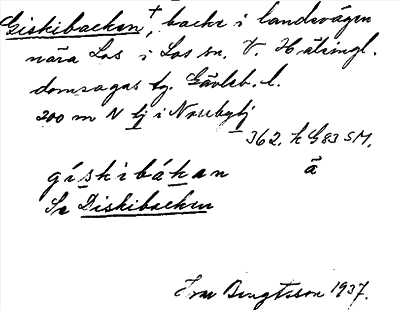 Giskibacken†, backe i landsvägen
nära Los i Los sn. V. Hälsingl.
domsagas tg. Gävleb. l.
200 m N lj i Norrbyhj
362. h G83 SM.
gískibákan ã
Se Diskibacken
Bengtsson 1937.